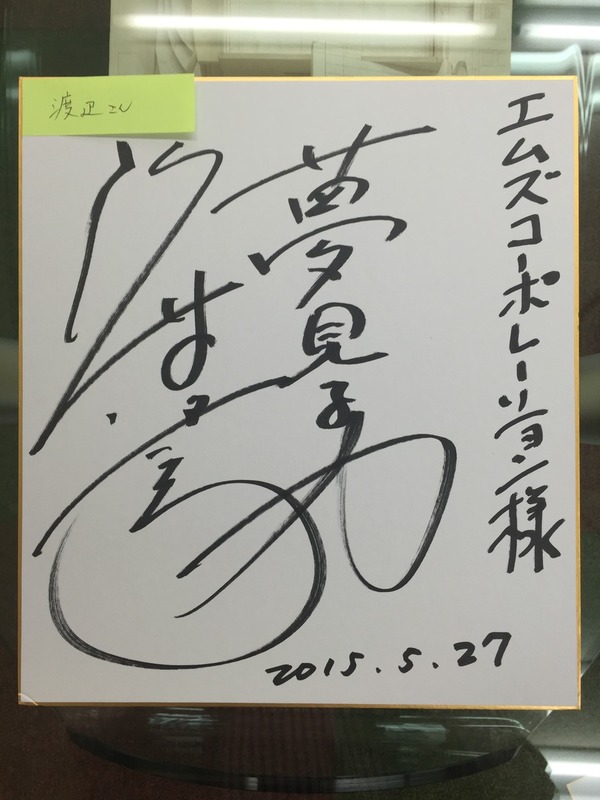 渡辺さん
エムズコーポレーション様
夢見子
2015.5.27